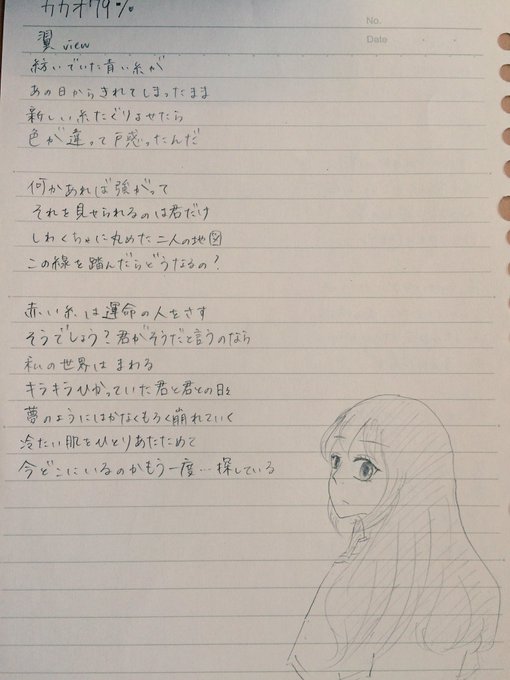 カカオ79%
No.
Date
view
紡いでいた青い糸が
あの日からきれてしまったまま
新しい糸たぐりよせたら
色が違って戸惑ったんだ
何かあれば強がって
それを見せられるのは君だけ
しわくちゃに丸めた二人の地図
この線を踏んだらどうなるの?
赤い糸は運命の人をさす
そうでしょう?君がそうだと言うのなら
私の世界はまわる
キラキラひかっていた君と君との日々
夢のようにはかなくもろく崩れていく
冷たい肌をひとりあたためて
今どこにいるのかもう一度…探している